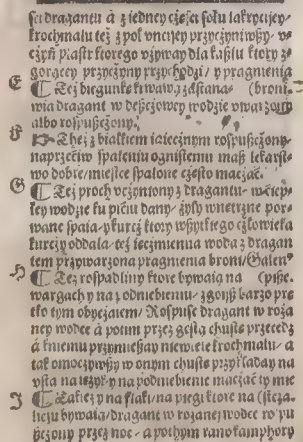 ści dragantu á z iedney cżęści soku lakrycyey
krochmalu też z pol vncyey przycżyniwszy
cżyń piastr ktorego vżyway dla kaszlu ktory z
gorącey przycżyny przychodzi / y pragnienia
E ¶ Też biegunkę krwawą zástana- (broni.
wia dragant w deszcżowey wodzie vwarzony
albo rozpuszcżony.
F Theż z białkiem iaiecżnym rospuszcżony
naprzećiw spaleniu ognistemu masz lekárst-
wo dobre / mieśce spalone cżęsto mácżáć.
G ¶ Też proch vcżyniony z dragantu w ciep-
łey wodzie ku pićiu dany / żyły wnętrzne porw-
ane spaia / y kurcż ktory wszytkiego cżłowieká
kurcży oddala / też ięcżmienna woda z dragan
tem przywarzona pragnienia broni / Galen9
H ¶ Też rospádliny ktore bywaią na (pisze.
wargach y na podniebieniu / zgoisz barzo prę
tko tym obycżaiem / Rospusć dragant w roża
ney wodce á potim przez gęstą chustę przecedz
á k niemu przymieszay niewiele krochmalu / á
tak omocżywszy w onym chustę przykładay na
vsta na ięzyk y na podniebienie mácżáiąc ty mie
I ¶ Tákież y na flaki / na piegi ktore na (śca.
licu bywaią / dragant w rożaney wodce ro pu
szcżony przez noc / a pothym ramo kamphory